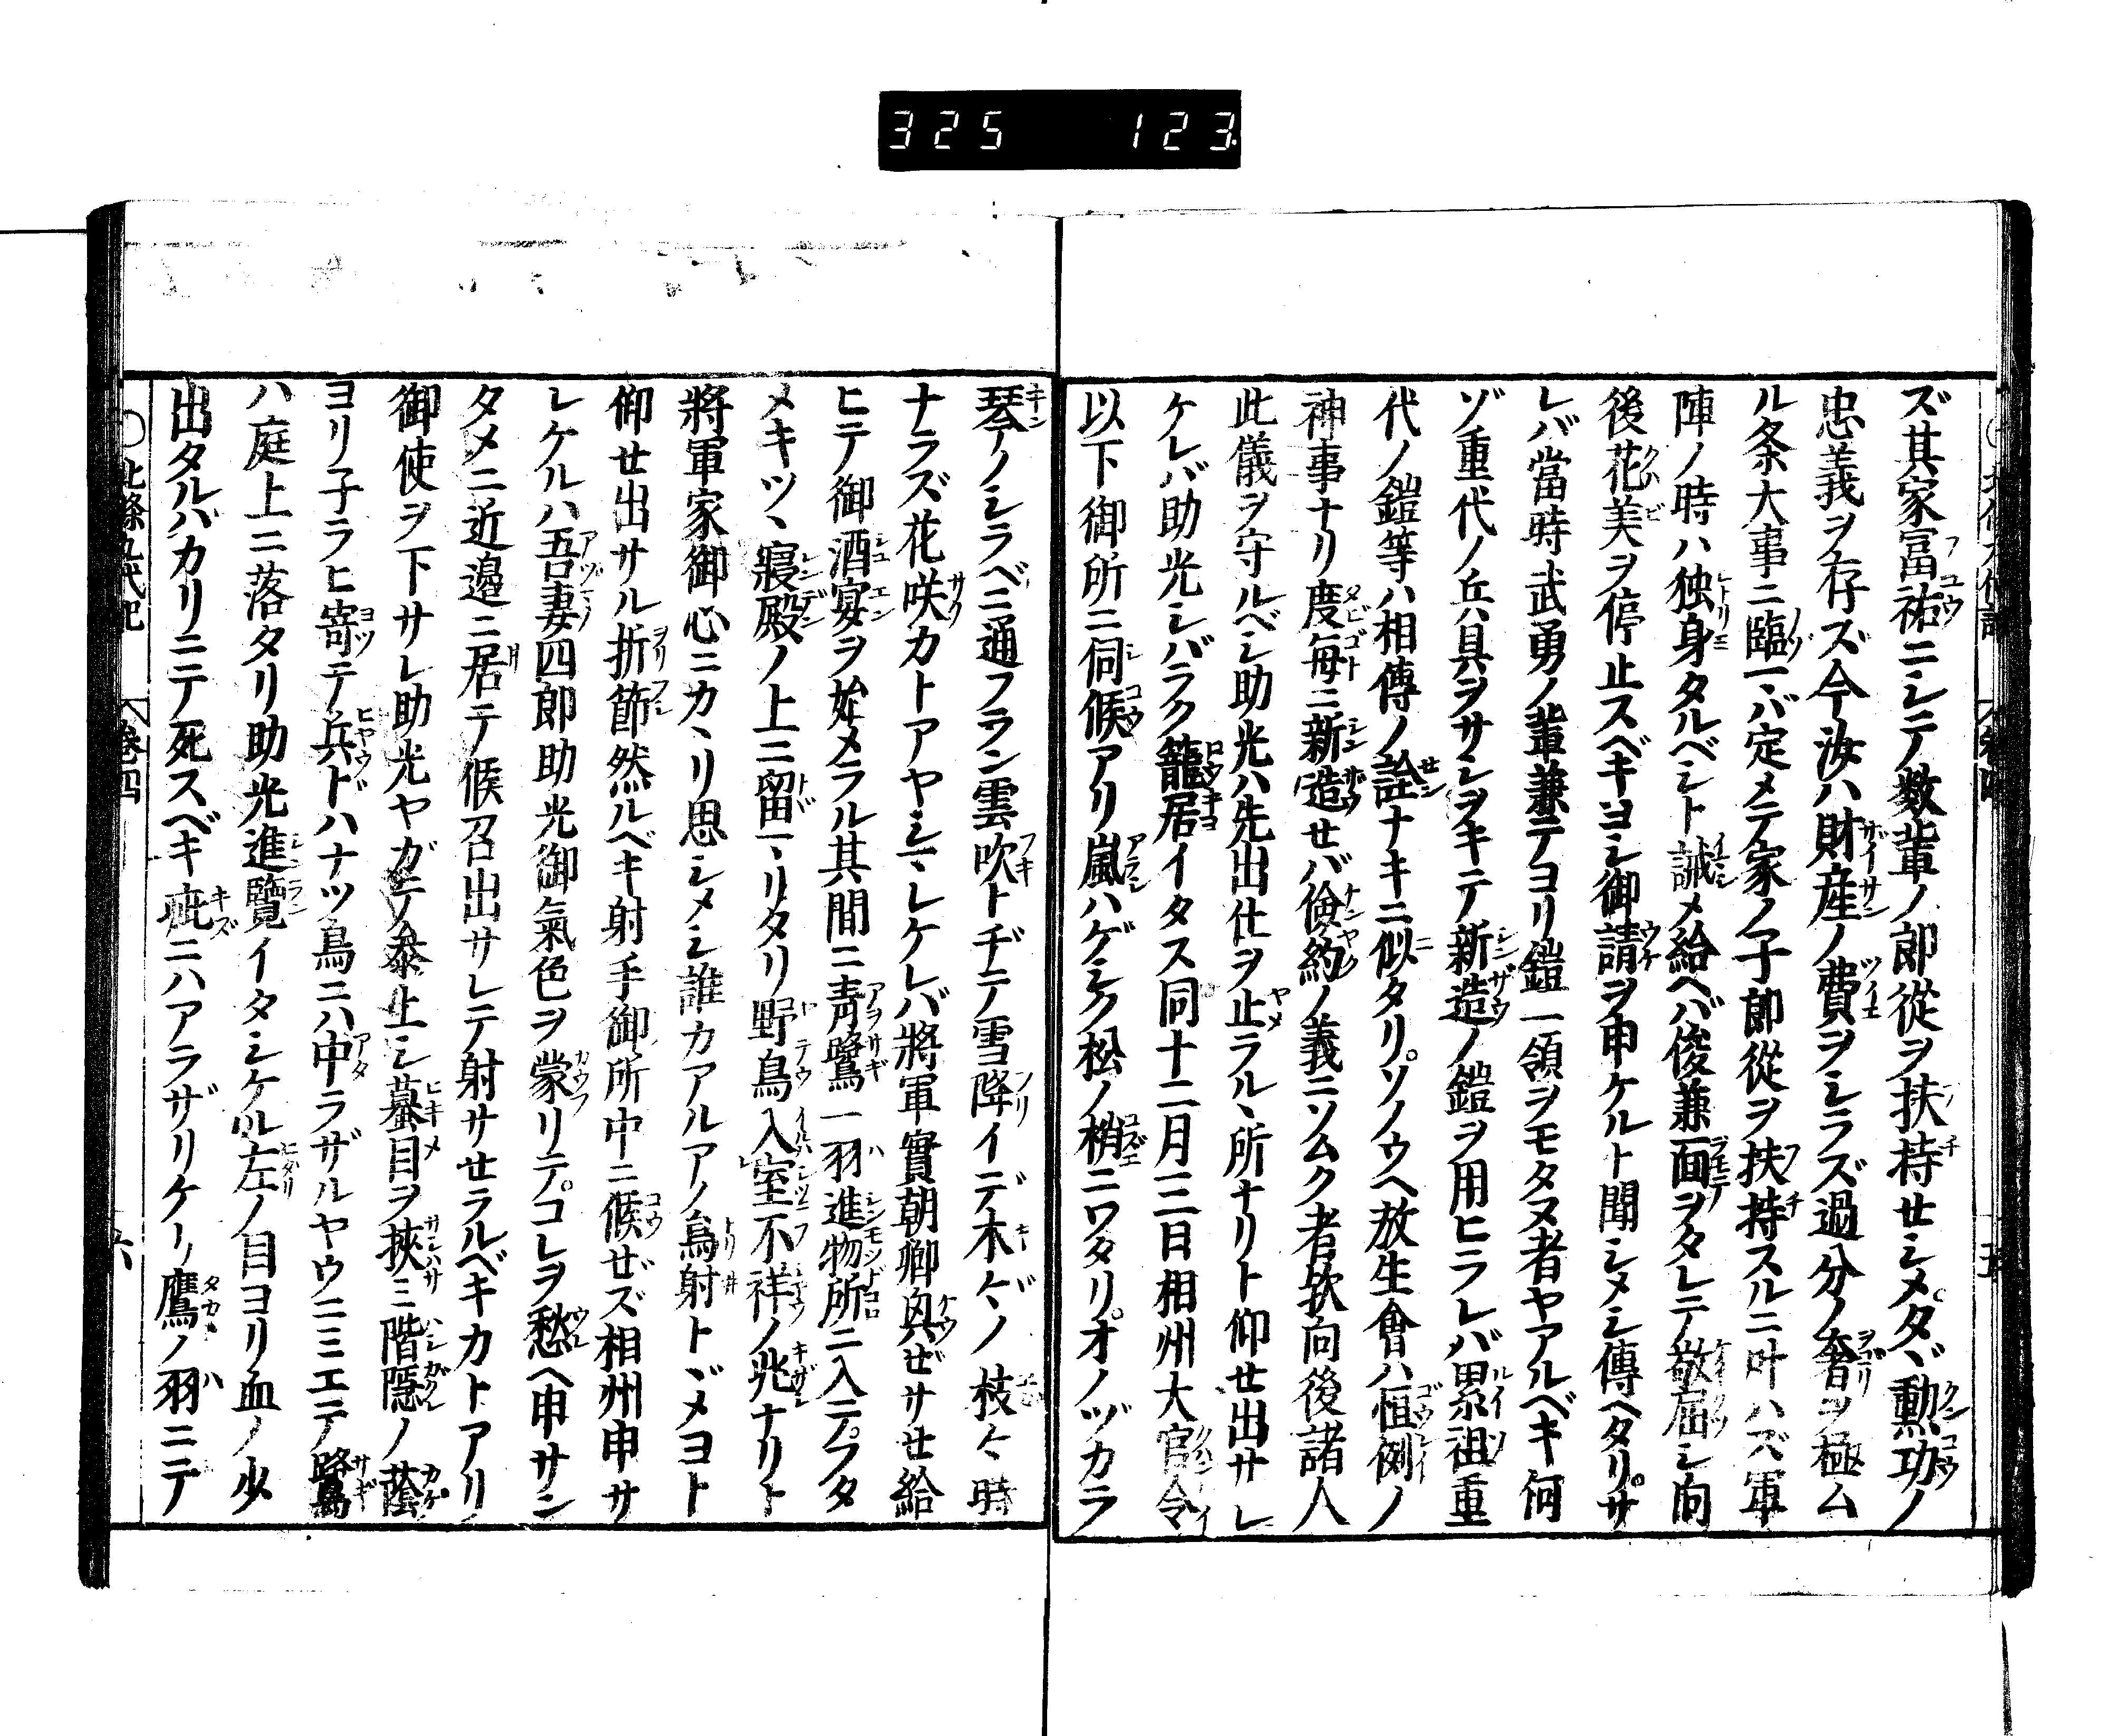 325 123
ズ其家冨祐ニシテ数輩ノ郎從ヲ扶持セシメタヾ勲功ノ
忠義ヲ存ズ今汝ハ財産ノ費ヲシラズ過分ノ奢ヲ極ム
ル条大事ニ臨マバ定メテ家ノ子郎從ヲ扶持スルニ叶ハズ軍
陣ノ時ハ独身タルベシト誡メ給ヘバ俊兼面ヲタレテ敬屈シ向
後花美ヲ停止スベキヨシ御請ヲ申ケルト聞シメシ傳ヘタリサ
レバ當時武勇ノ輩兼テヨリ鎧一領ヲモタヌ者ヤアルベキ何
ゾ重代ノ兵具ヲサシヲキテ新造ノ鎧ヲ用ヒラレバ累祖重
代ノ鎧等ハ相傳ノ詮ナキニ似タリソノウヘ放生會ハ恒例ノ
神事ナリ度毎ニ新造セバ儉約ノ義ニソムク者欤向後諸人
此儀ヲ守ルベシ助光ハ先出仕ヲ止ラルヽ所ナリト仰セ出サレ
ケレバ助光シバラク籠居イタス同十二月三日相州大官令
以下御所ニ伺候アリ嵐ハゲシク松ノ梢ニワタリオノヅカラ
琴ノシラベニ通フラン雲吹トヂテ雪降イデ木ゲノ枝々時
ナラズ花咲カトアヤシマレケレバ將軍實朝卿興ゼサセ給
ヒテ御酒宴ヲ始メラル其間ニ青鷺一羽進物所ニ入テフタ
メキツヽ寝殿ノ上ニ留マリタリ野鳥入室不祥ノ兆ナリト
將軍家御心ニカヽリ思シメシ誰カアルアノ鳥射トヾメヨト
仰セ出サル折節然ルベキ射手御所中ニ候ゼズ相州申サ
レケルハ吾妻四郎助光御氣色ヲ蒙リテコレヲ愁ヘ申サン
タメニ近邉ニ居テ候召出サレテ射サセラルベキカトアリ
御使ヲ下サレ助光ヤガテ叅上シ蟇目ヲ挾ミ階隠ノ蔭
ヨリ子ラヒ寄テ兵ドハナツ鳥ニハ中ラザルヤウニミエテ鷺
ハ庭上ニ落タリ助光進覽イタシケル左ノ目ヨリ血ノ少
出タルバカリニテ死スベキ疵ニハアラザリケリ鷹ノ羽ニテ
○北條九代記 卷四 六